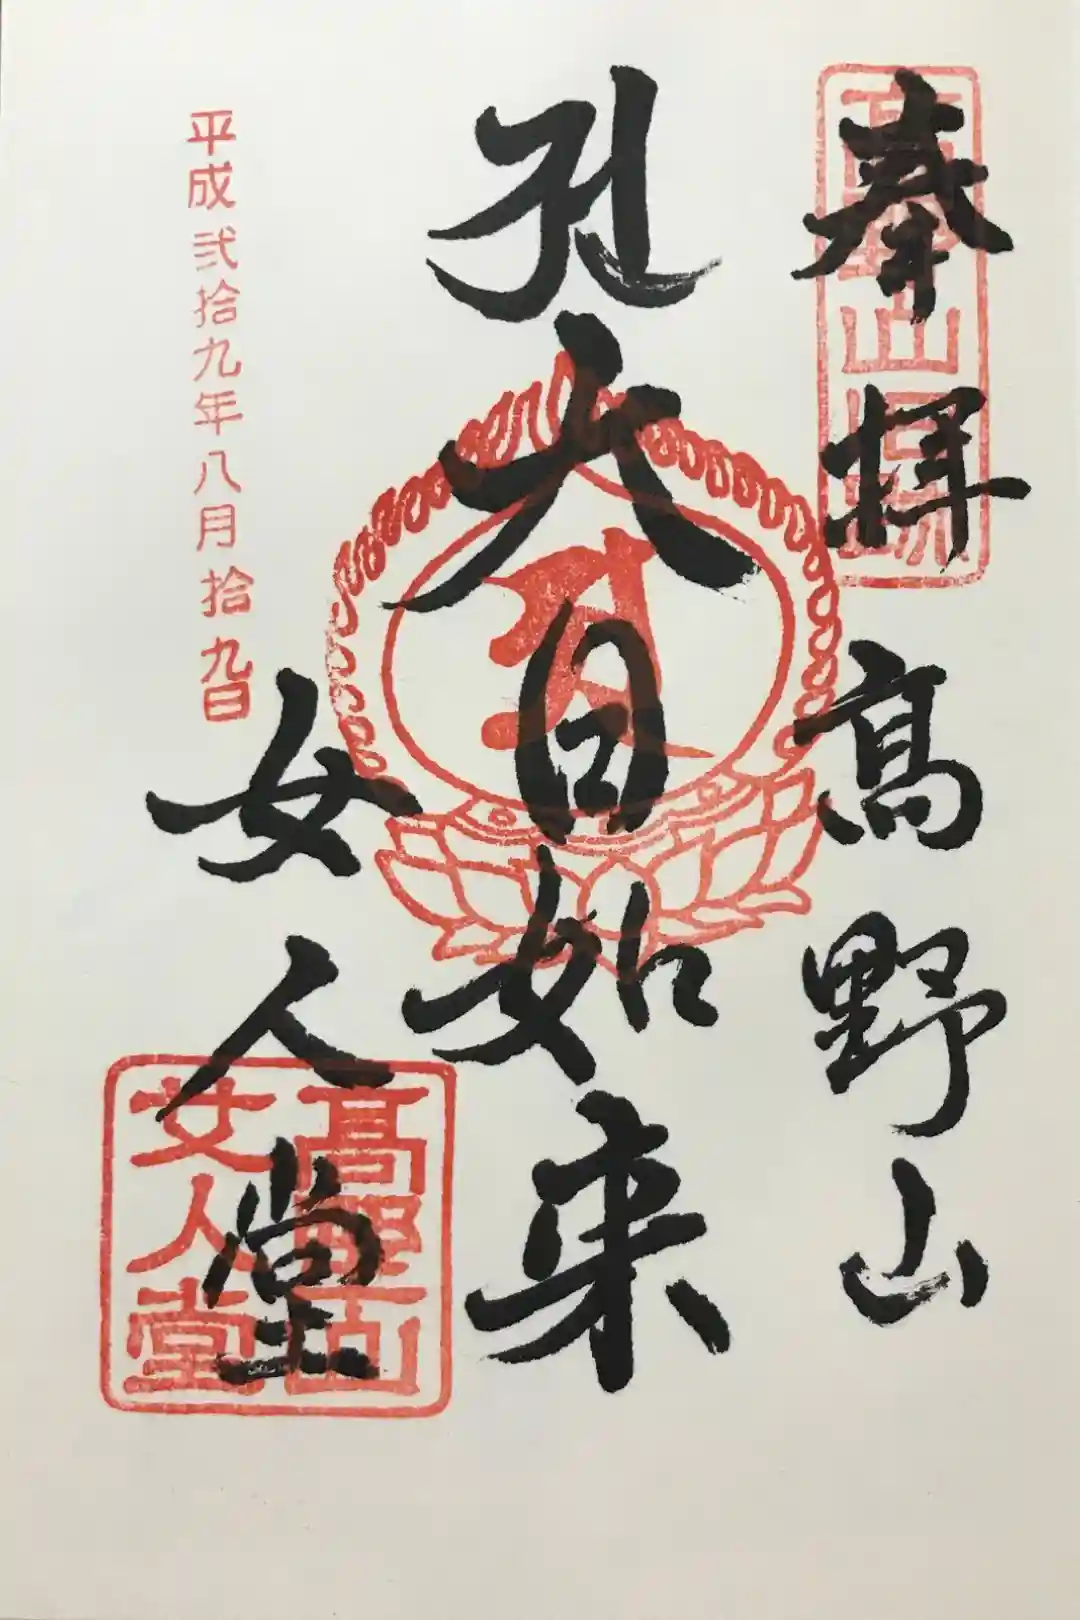 奉拝 高野山
大日如来
女人堂
平成弐拾九年八月拾九日
高野山
女人堂